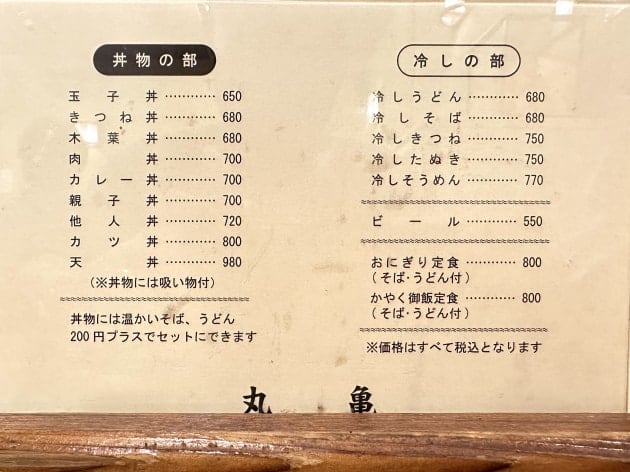 丼物の部
玉子丼 ………… 650
きつね丼 ………… 680
木葉丼 ………… 680
肉丼 ………… 700
カレー丼 ………… 700
親子丼 ………… 700
他人丼 ………… 720
カツ丼 ………… 800
天丼 ………… 980
(※丼物には吸い物付)
丼物には温かいそば、うどん
200円プラスでセットにできます
冷しの部
冷しうどん ………… 680
冷しそば ………… 680
冷しきつね ………… 750
冷したぬき ………… 750
冷しそうめん ………… 770
ビール ………… 550
おにぎり定食 ………… 800
(そば・うどん付)
かやく御飯定食 ………… 800
(そば・うどん付)
※価格はすべて税込となります
丸亀